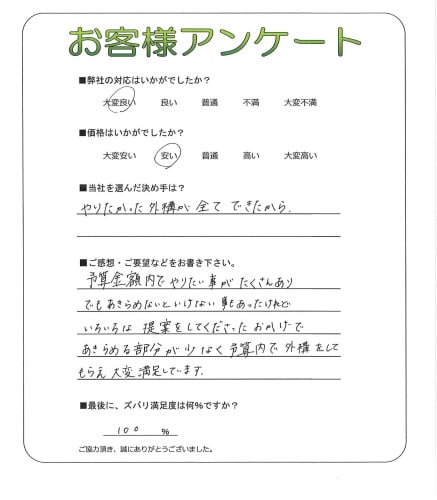 お客様アンケート
■弊社の対応はいかがでしたか?
大変良い 良い 普通 不満 大変不満
■価格はいかがでしたか?
大変安い 安い 普通 高い 大変高い
■当社を選んだ決め手は?
やりたかった外構が全てできたから.
■ご感想・ご要望などをお書き下さい。
予算金額内でやりたい事がたくさんあり
でもあきらめないといけない事もあったけれど
いろいろな提案をしてくださったおかげで
あきらめる部分が少なく予算内で外構をして
もらえ大変満足しています.
■最後に、ズバリ満足度は何%ですか?
100 %
ご協力頂き、誠にありがとうございました。